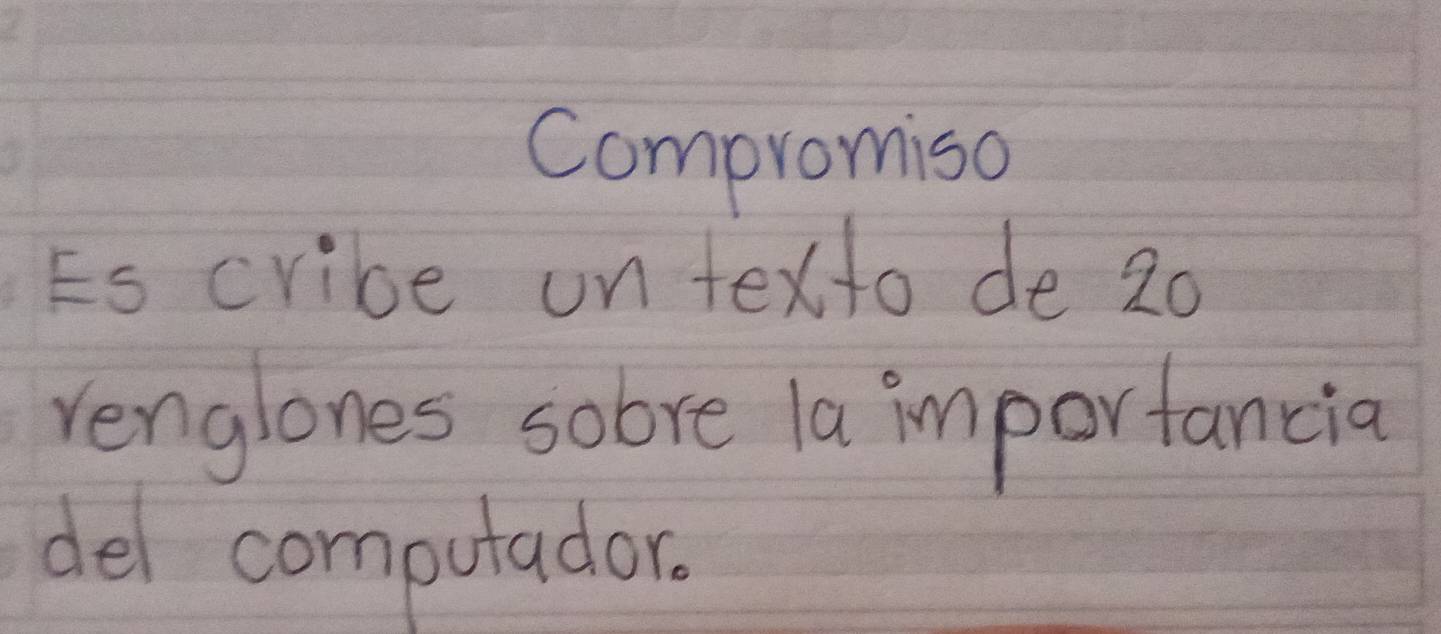 Compromiso
Es cribe un texto de 20
renglones sobre la importancia
del computador.